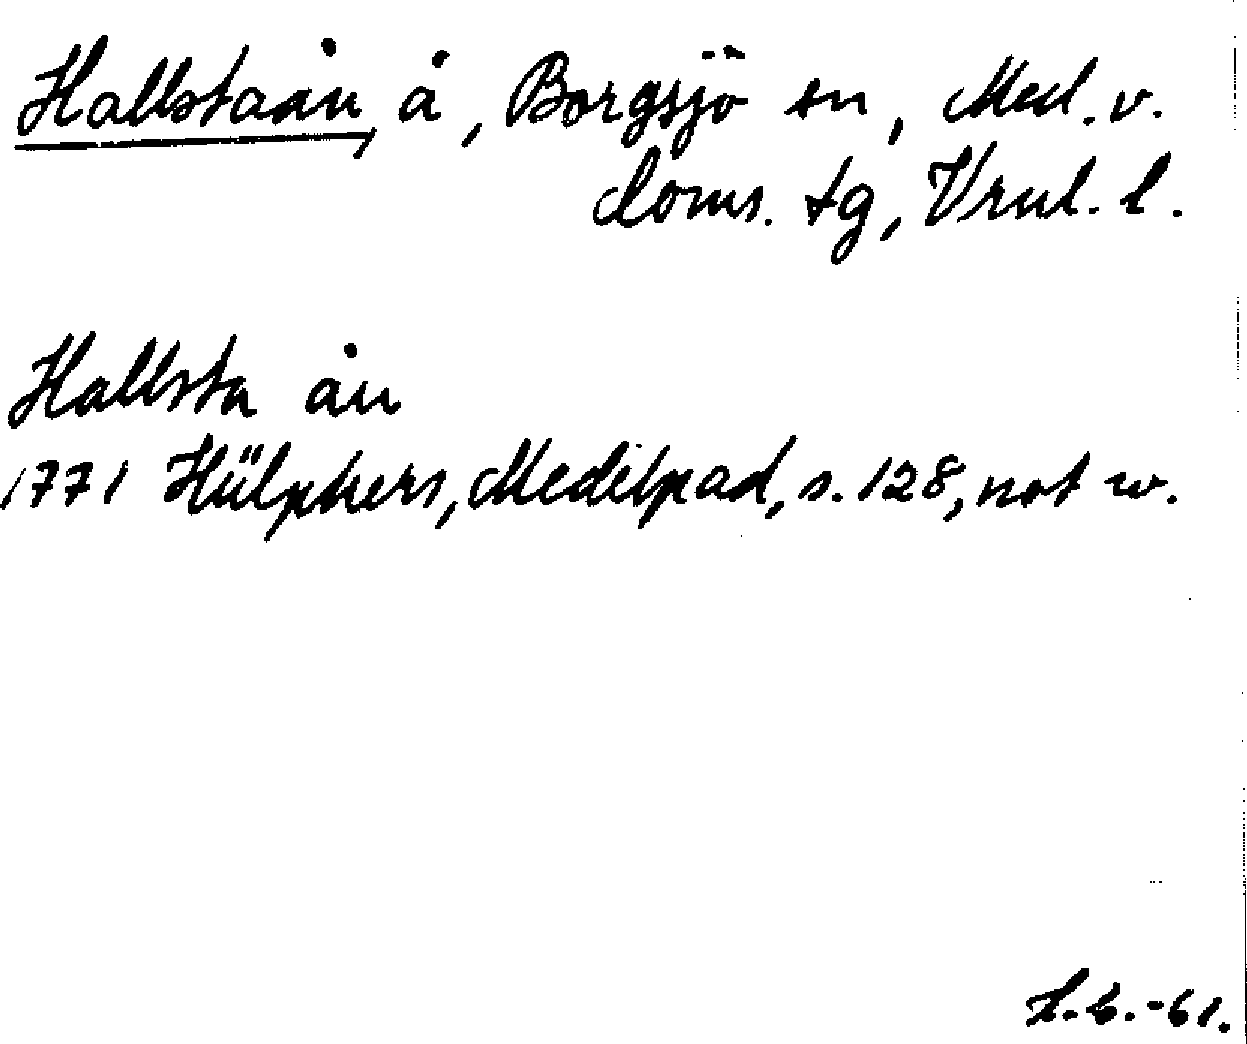 Hallstaån, å, Borgsjö sn, Med. v.
doms. tg, Vrnl. l.
Hallsta ån
1771 Hülphers, Medelpad, s. 128, not w.
L.B.-61.